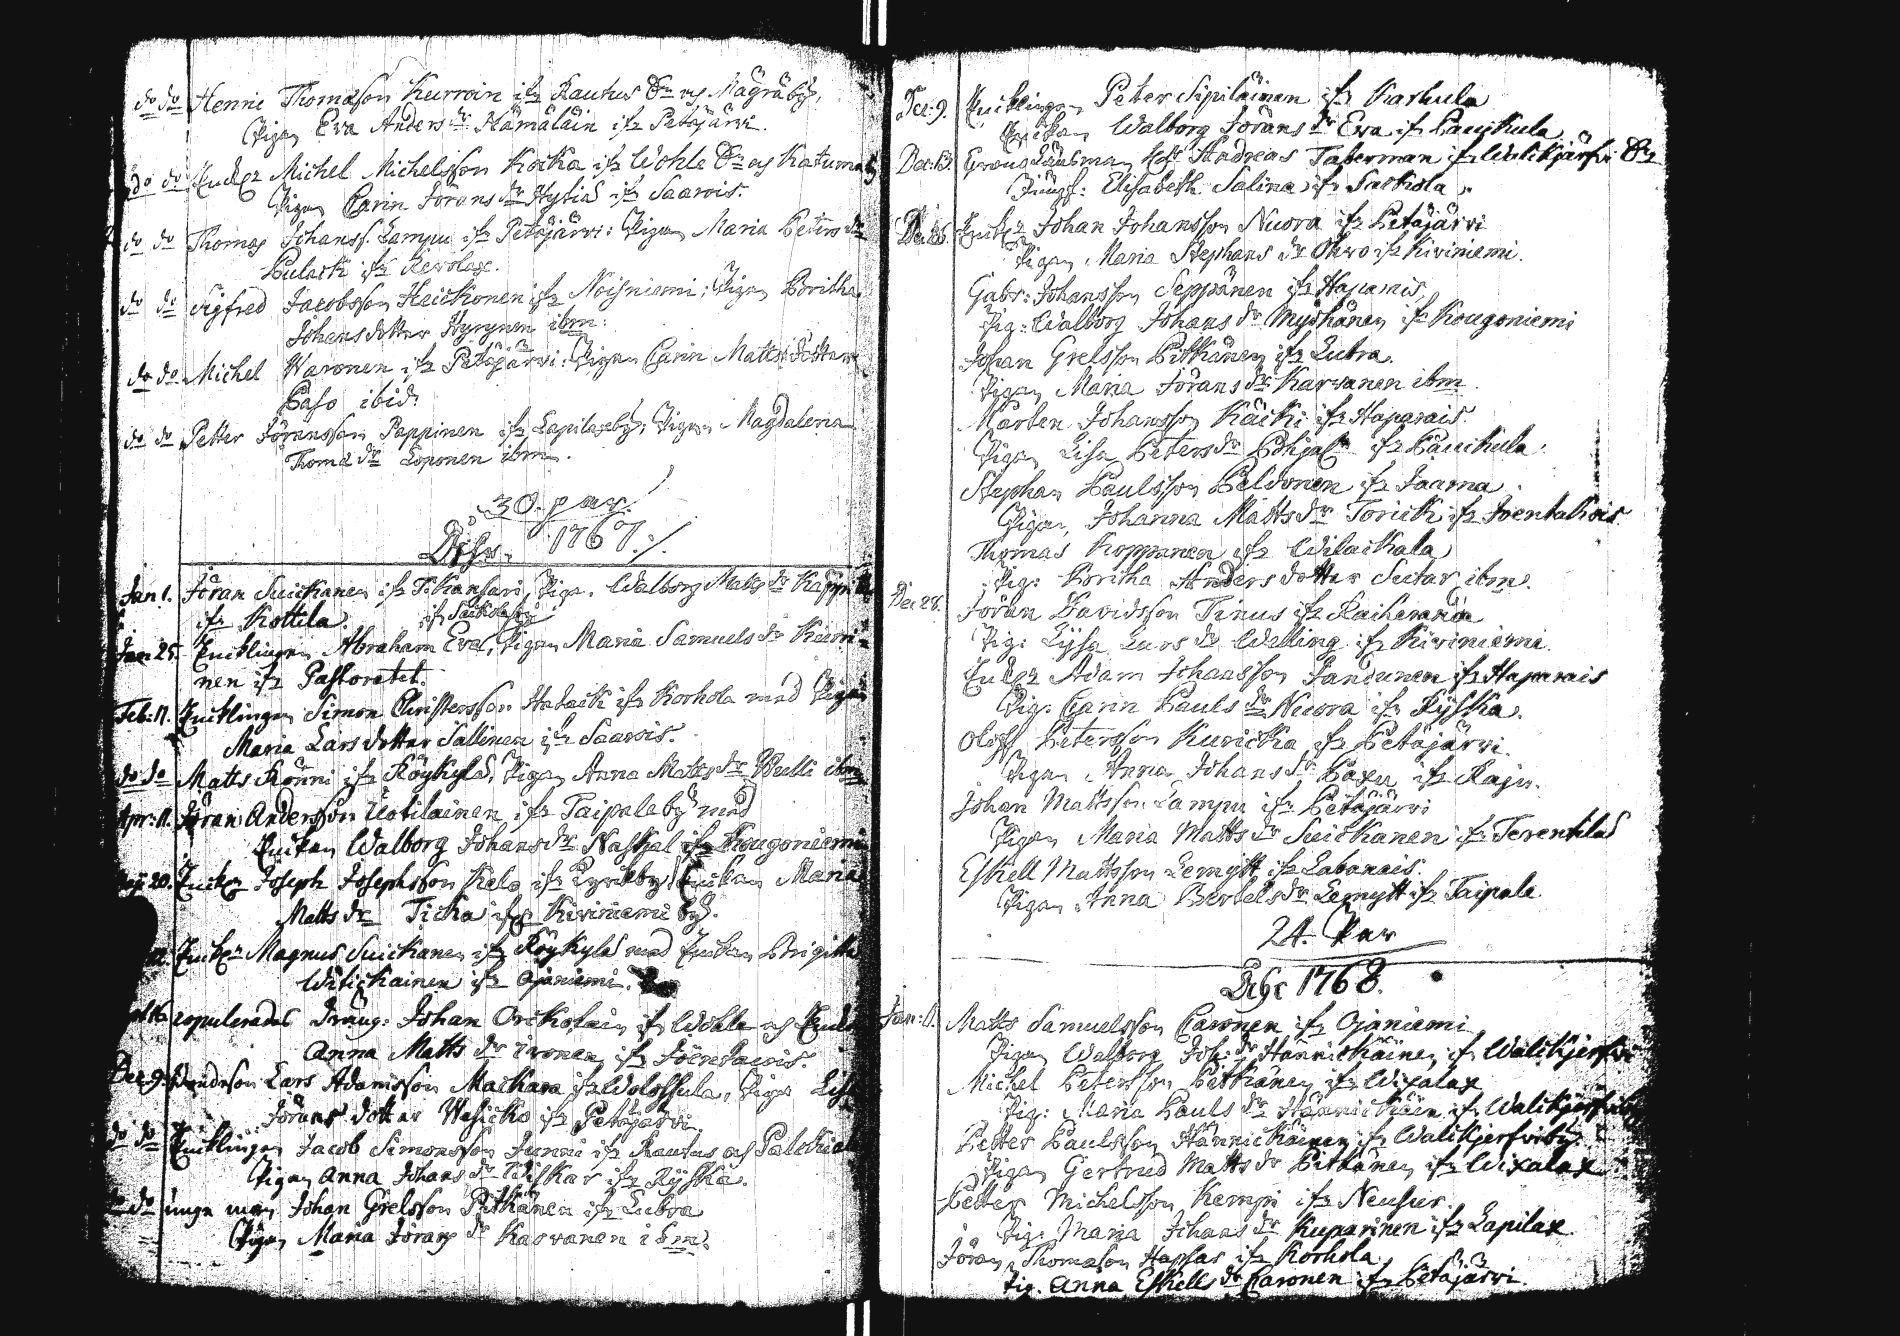 do do Henric Thomasson Kurroin ifr Rautus Sn och Mägräby,
Pigan Eva Anders dr Hämäläin ifr Petäjärvi.
do do Enkl. Michel Michelsson Kocka ifr Wohle Sn och Katuma
Pigan Carin Jörans dr Hytiä ifr Saarois.
do do Thomas Johanss. Lampu ifr Petäjärvi: Pigan Maria Peters dr
Pulack ifr Revolax.
do do Sigfred Jacobsson Heickonen ifr Noisniemi; Pigan Britha
Johans dotter Hyrynen ibm:
do do Michel Waronen ifr Petäjärvi: Pigan Carin Matts dotter
Paso ibid:
do do Petter Jöransson Pappinen ifr Lapilaxby; Pigan Magdalena
Thomæ dr Loponen ibm.
30. par.
1767./.
Jan 1. Jöran Suickanen ifr Tikansari, Piga. Walborg Matts dr
ifr Kottila. ifr Sackola by
Jan: 25. Enklingen Abraham Eve, Pigan Maria Samuels dr
nen ifr Pastoratet.
Feb: 11. Enklingen Simon Christersson Hatack ifr Korhola med Pigan
Maria Lars dotter Sallinen ifr Saarois.
do do Matts Rönni ifr Röykylä, Pigan Anna Matts dr Wulli ibm
Apr: 11. Jöran Andersson Uotilainen ifr Taipaleby med
Enkan Walborg Johans dr Naskal ifr Kougoniemi
20. Enkl. Joseph Josephsson Kelo ifr Kyrkby, Enkan Maria
Matts dr Ticka ifr Kiviniemi by.
Enkl. Magnus Suickanen ifr Röykylä med Enkan Brigitta
Wälickainen ifr Ojaniemi.
copulerades Dräng: Johan Orickofain ifr Wohle och Enkan
Anna Matts dr Ivonen ifr Joentacois.
Dec: 9. Bondeson Lars Adamsson Mackara ifr Wolossula, Piga Lisa
Jörans dotter Wesicko ifr Petäjärvi.
do do Enklingen Jacob Simonsson Junni ifr Rautus och Paleckiala
Pigan Anna Johans dr Wiskar ifr Ryska.
do do unge man Johan Grelsson Pitkänen ifr Lutra
Pigan Maria Jörans dr Karvanen ibm.
Dec: 9. Enklingen Peter Sipiläinen ifr Karhula
Enkan Walborg Jörans dr Eva ifr Pauckula
Dec: 13. Andreas Taberman ifr Walkjärfvi Sn
Jungf: Elisabeth Salina ifr Sackola.
Dec: 26. Enkl. Johan Johansson Nuora ifr Petäjärvi
Pigan Maria Stephans dr Okro ifr Kiviniemi.
Gabr: Johansson Seppänen ifr Haparais,
Pig: Walborg Johans dr Myöhänen ifr Kougoniemi
Johan Grelsson Pitkänen ifr Lutra.
Pigan Maria Jörans dr Karvanen ibm.
Mårten Johansson Käcki ifr Haparais.
Pigan Lisa Peters dr Pohjal ifr Pauckula.
Stephan Paulsson Peldonen ifr Jaama.
Pigan, Johanna Matts dr Torick ifr Joentakois
Thomas Koppanen ifr Wilackala
Pig: Britha Anders dotter Sutar ibm.
Dec 28. Jöran Davidsson Tinus ifr Raiheranda
Pig: Lijsa Lars dr Welling ifr Kiviniemi.
Enkl. Adam Johansson Jandunen ifr Haparais
Pig: Carin Pauls dr Nuora ifr Ryska.
Oloff Petersson Kuricka ifr Petäjärvi.
Pigan Anna Johans dr Paxu ifr Raju.
Johan Mattsson Lampu ifr Petäjärvi
Pigan Maria Matts dr Suickanen ifr Terentilä
Eskell Mattsson Lemytt ifr Labanais.
Pigan Anna Bertels dr Lemytt ifr Taipale.
24. Par
1768.
Jan: 11. Matts Samuelsson Paronen ifr Ojaniemi
Pigan Walborg Jos: dr Hännickäinen ifr Walckjerfwi
Michel Petersson Pitkänen ifr Wixalax
Pig: Maria Pauls dr Hännickäin ifr Walckjerfwiby
Petter Paulsson Hännickäinen ifr Walckjerfwiby.
Pigan Gertrud Matts dr Pitkänen ifr Wixalax
Petter Michelsson Kemppi ifr Neusur.
Pig: Maria Johans dr Kuparinen ifr Lapilax
Jöran Thomason Hapsar ifr Korhola
Pig. Anna Eskells dr Paronen ifr Petäjärvi.